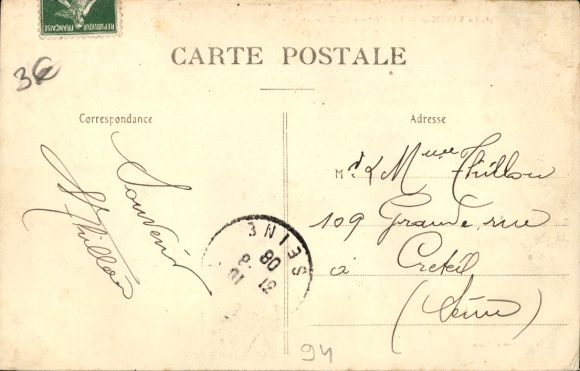 REPUBLIQUE
FRANÇAISE
3€
CARTE POSTALE
Correspondance
Adresse
Souvenir
Thillou
Mr & Mme Thillou
109 Grande rue
à Creteil
(Seine)
SEINE
08
94